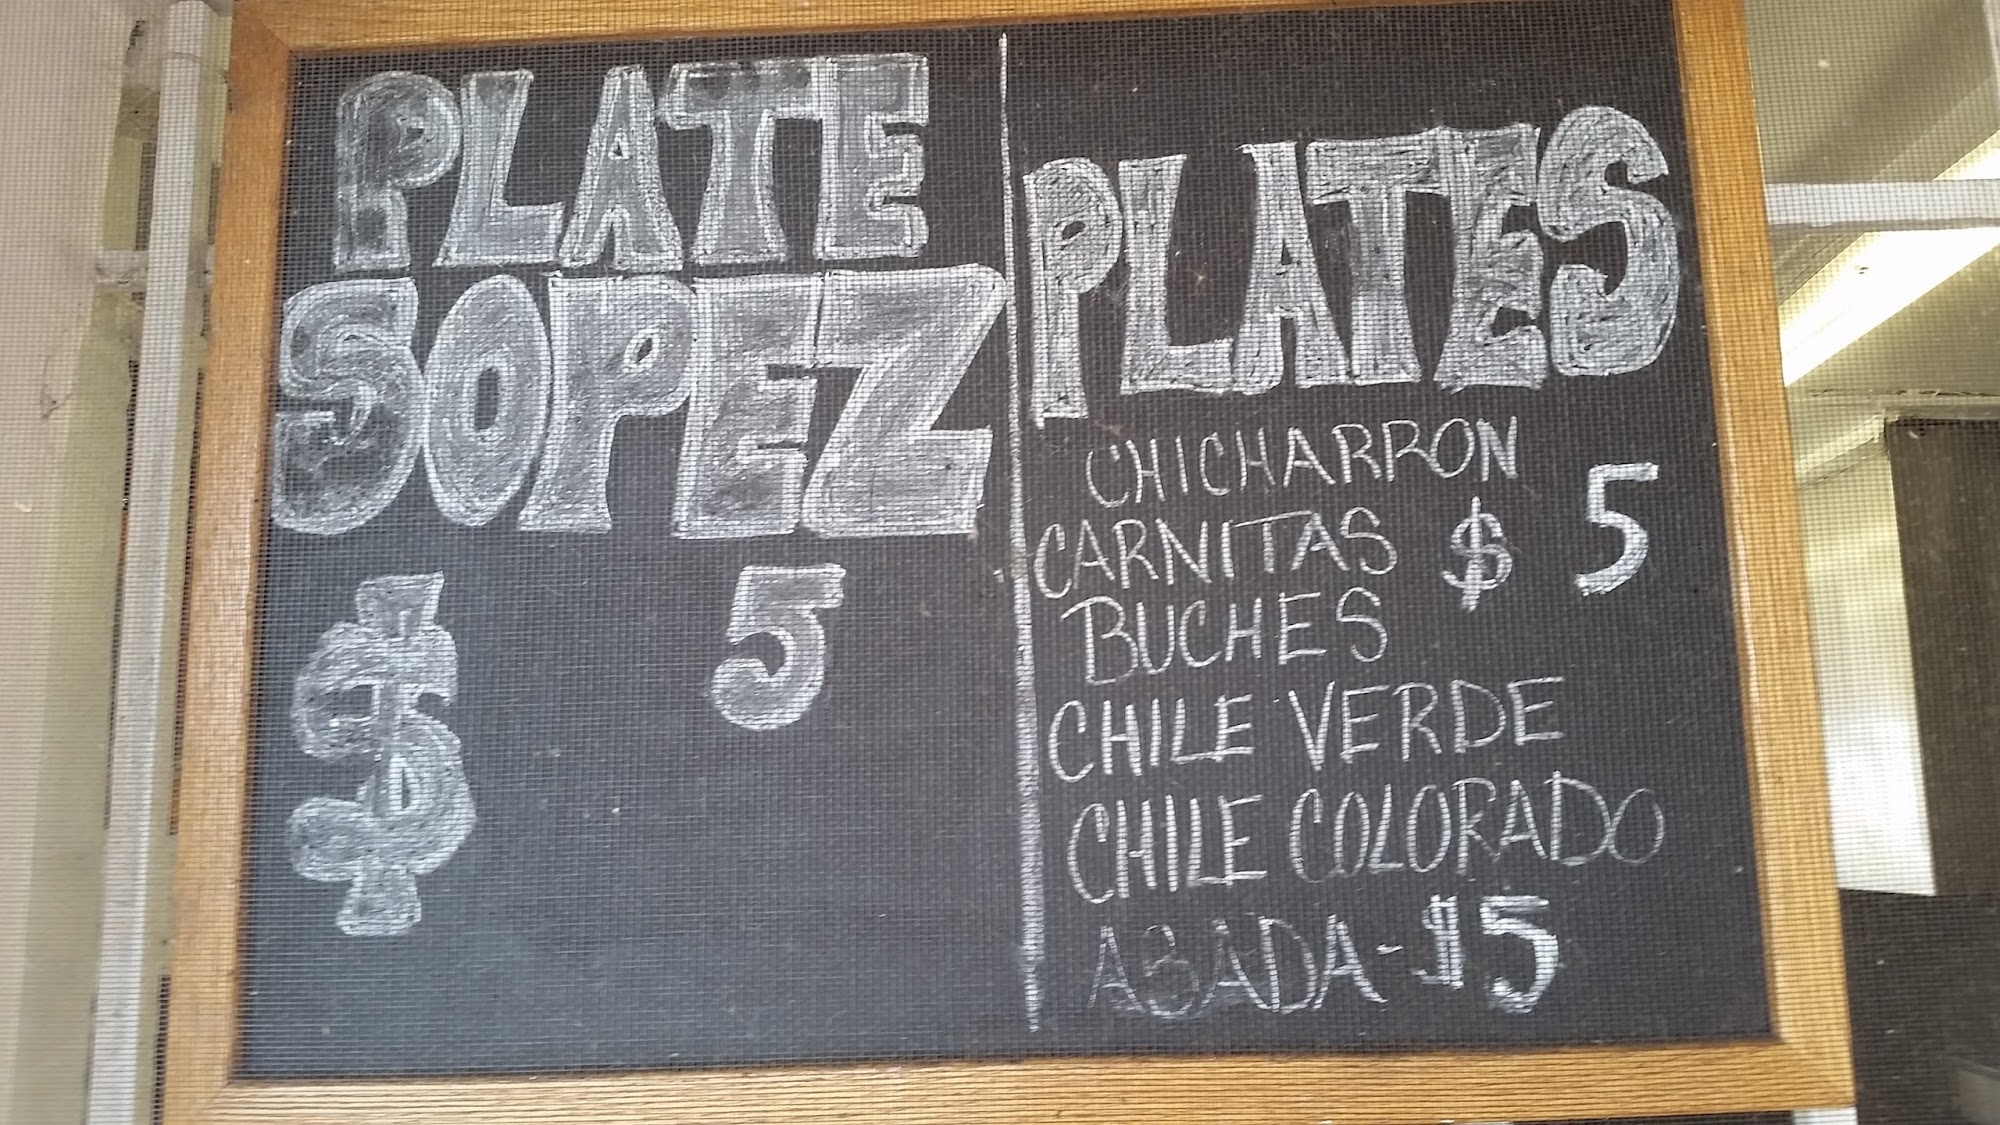 PLATE
SOPEZ
$ 5
PLATES
CHICHARRON
CARNITAS $ 5
BUCHES
CHILE VERDE
CHILE COLORADO
ASADA - $5